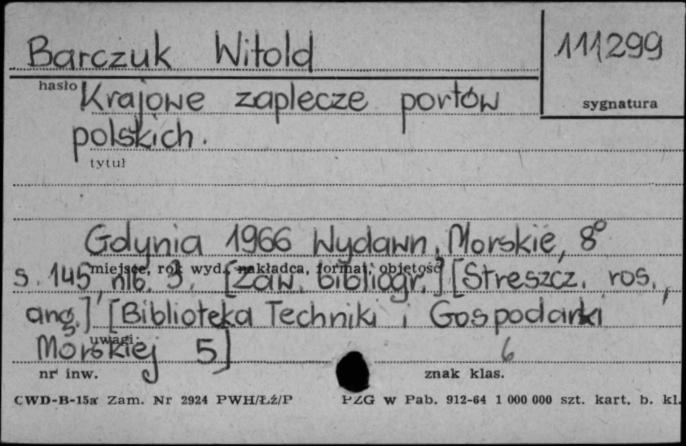 Barczuk Witold
111299
hasło
sygnatura
Krajowe zaplecze portów
polskich.
tytuł
Gdynia 1966 Wydawn. Morskie, 8°
miejsce, rok wyd., nakładca, format, objętość
s. 145, nlb. 3. [Zaw. bibliogr.] [Streszcz. ros.,
ang.] [Biblioteka Techniki i Gospodarki
uwagi
Morskiej 5]
6
nr inw.
znak klas.
CWD-B-15a Zam. Nr 2924 PWH/Łź/P
PZG w Pab. 912-64 1 000 000 szt. kart. b. kl.